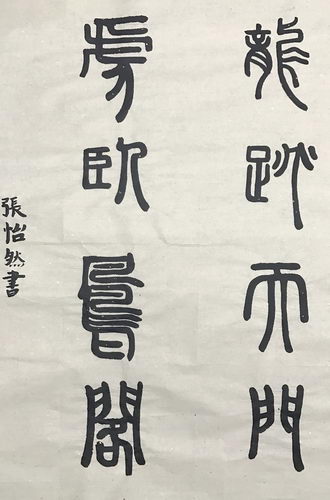 龍跳天門
虎臥閣
張怡然書